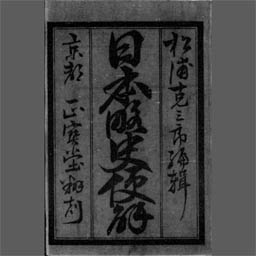 松浦克三郎編輯
日本略史便解
京都 正宝堂翻刻